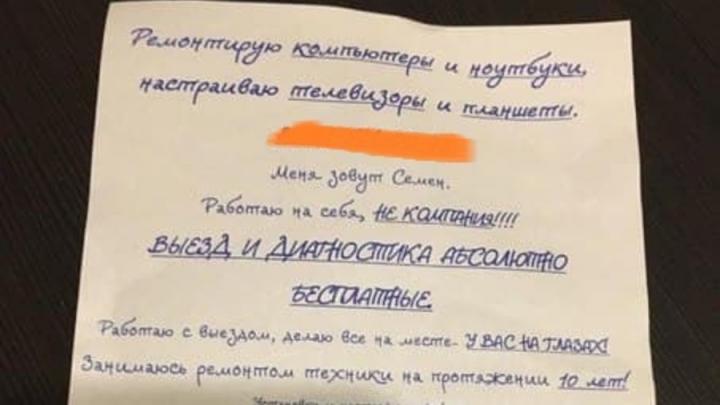 Ремонтирую компьютеры и ноутбуки,
настраиваю телевизоры и планшеты.
Меня зовут Семен.
Работаю на себя, НЕ КОМПАНИЯ!!!!
ВЫЕЗД И ДИАГНОСТИКА АБСОЛЮТНО
БЕСПЛАТНЫЕ.
Работаю с выездом, делаю все на месте- У ВАС НА ГЛАЗАХ!
Занимаюсь ремонтом техники на протяжении 10 лет!